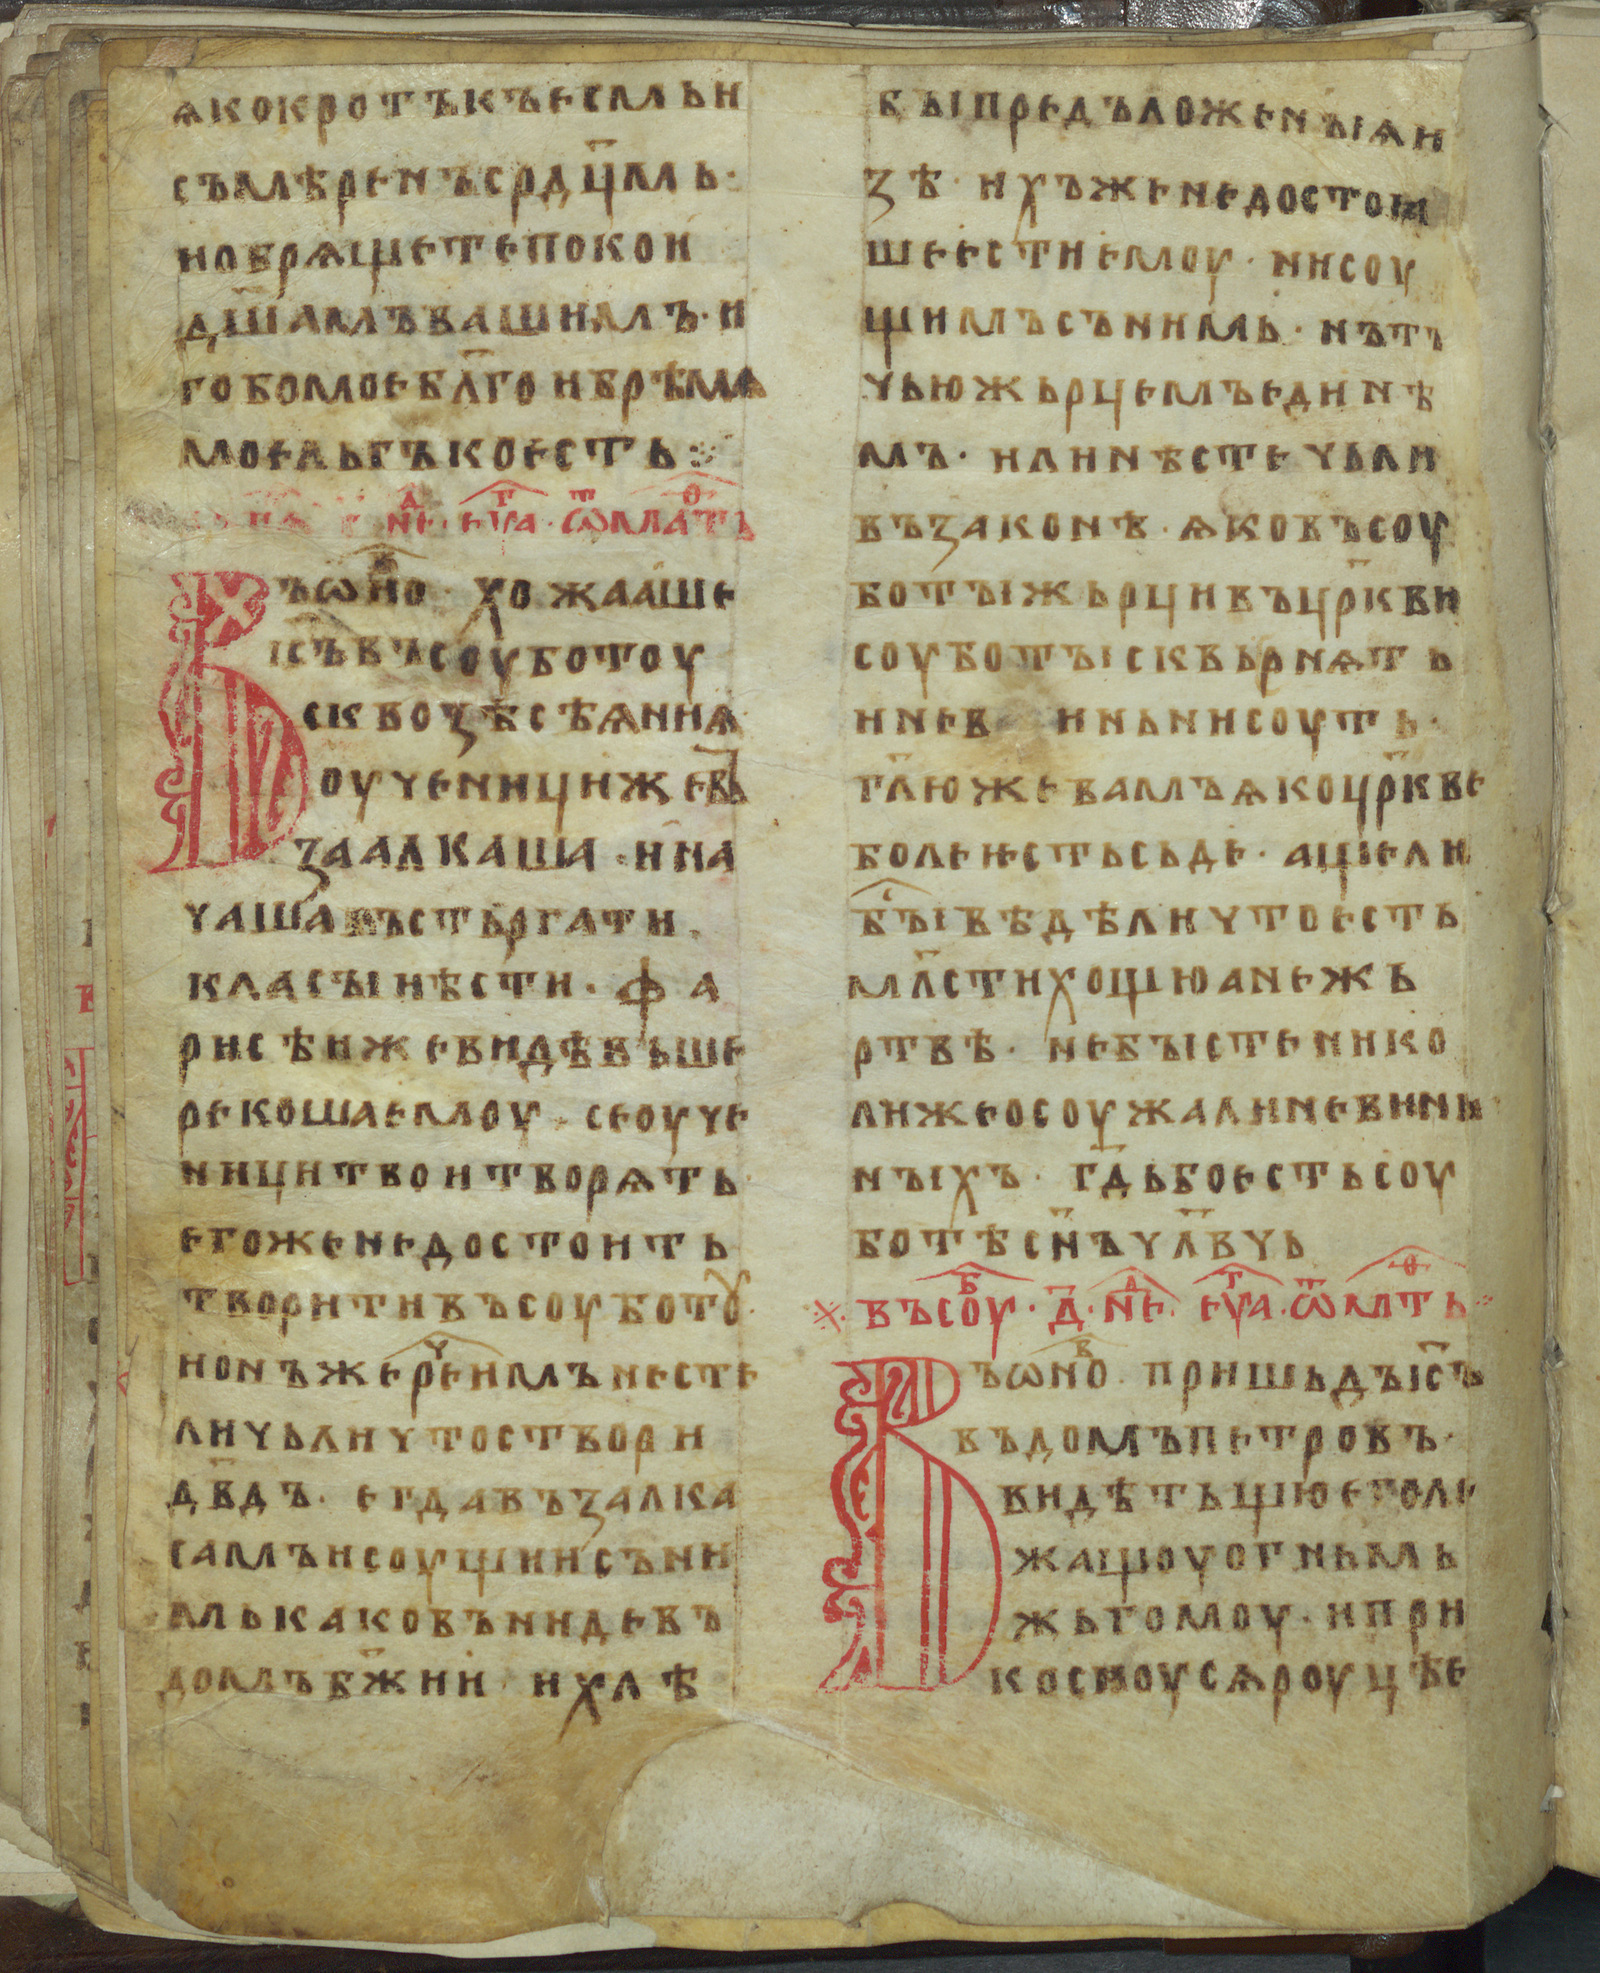 ѧкокротъкъесмьи
съмѣренъсрдц҃мь·
иобрѧщетепокои
дш҃амъвашимъ·и
гобомоебл҃гоибрѣмѧ
моельгъкоесть҂
не·еѵа·ѿмат
Въѡно·хожааше
ісъвъсоуботоу
сквозѣсѣѧниѧ·
оученицижевъ
заалкаша·ина
чашавъстьргати·
класыіѣсти·фа
рисѣижевидѣвъше
рекошаемоу·сеоуче
ницитвоитворѧть·
егоженедостоить
творитивъсоуботоу·
нонъжереимънесте
личьличтоствори
дв҃дъ·егдавъзалка
самъисоущиисъни
мькаковънидевъ
домъбж҃ии·ихлѣ
быпредъложеныѧи
зѣ·ихъженедостои
шеестиемоу·нисоу
щимъсънимь·нътъ
чьюжьрцемъединѣ
мъ·илинѣстечьли
възаконѣ·ѧковъсоу
ботыжьрцивъцр҃кви
соуботыісквьрнѧть
иневиньнисоуть·
гл҃южевамъѧкоцр҃кве
болеѥстьсьде·ащели
быівѣдѣличтоесть
мл҃стихощюанежъ
ртвѣ·небыістенико
лижеосоужалиневинь
ныіхъ·гд҃ьбоестьсоу
ботѣсн҃ъчл҃вчь
въсоу·д҃·не·еѵа·ѿмть
Въѡно·пришьдъіс҃ъ
въдомъпетровъ·
видѣтьщюеголе
жащоуогньмь
жьгомоу·ипри
косноусѧроуцѣе